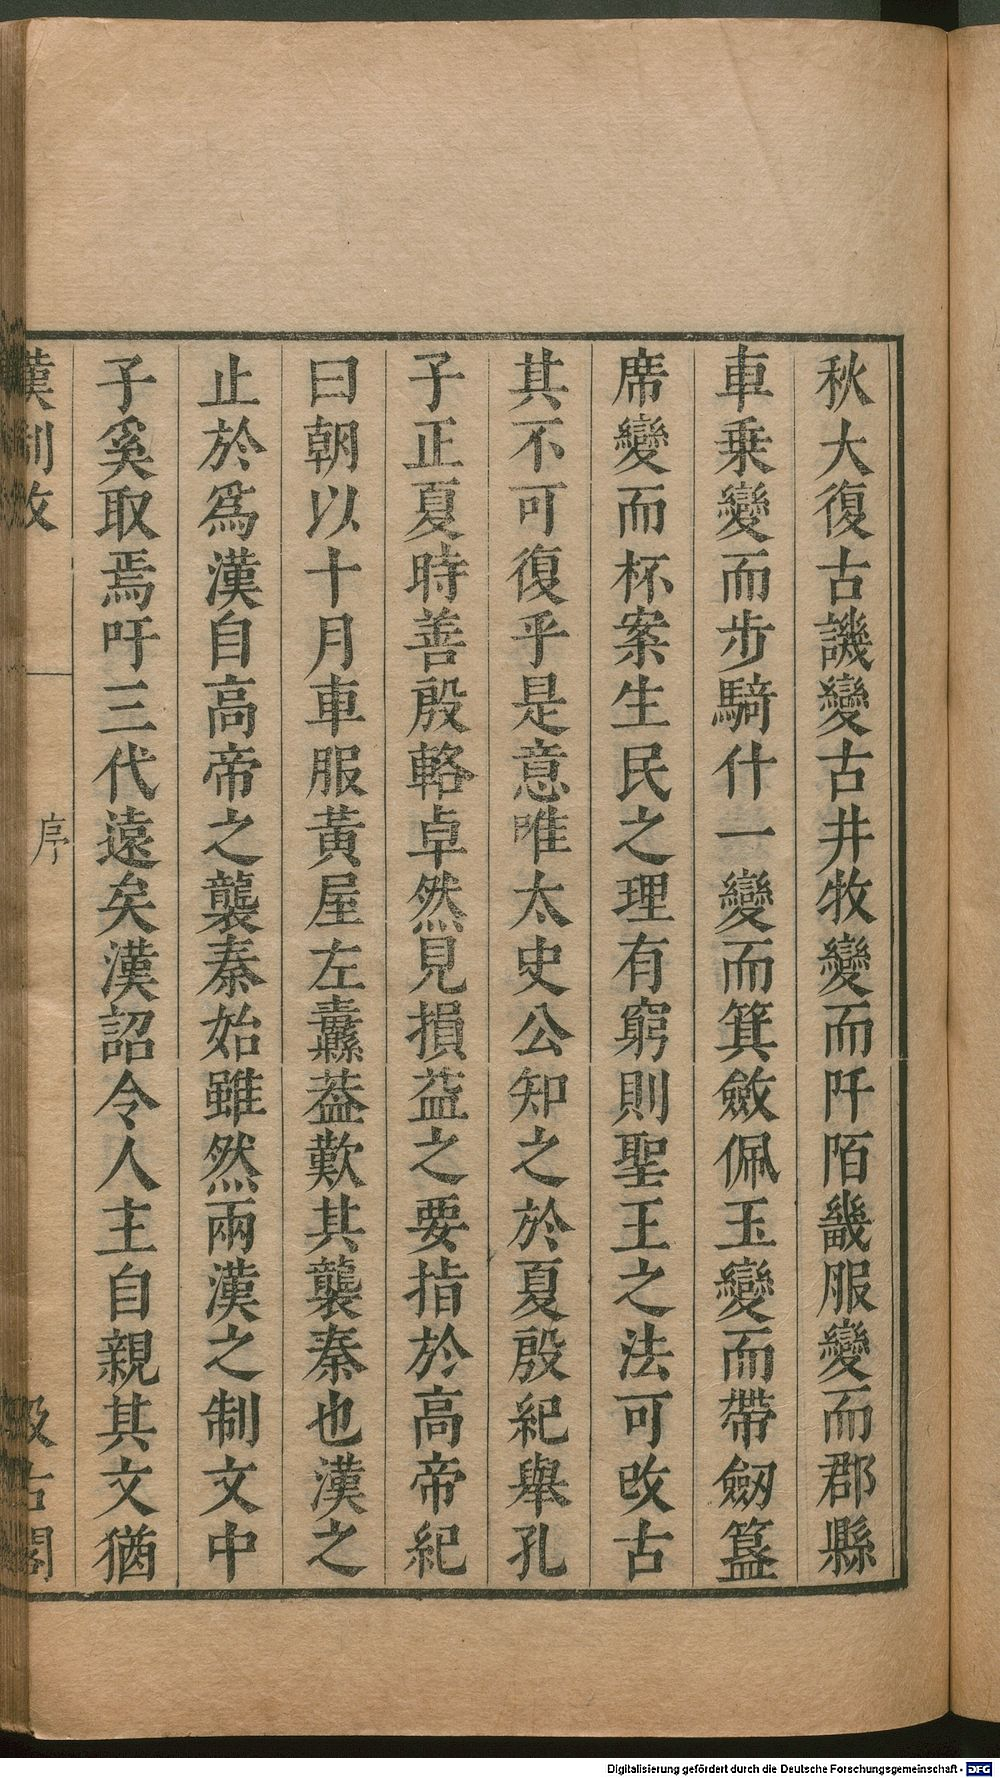 秋大復古譏變古井牧變而阡陌畿服變而郡縣
車乗變而步騎什一變而箕斂佩玉變而帶劒簋
席變而杯案生民之理有窮則聖王之法可改古
其不可復乎是意唯太史公知之於夏殷紀舉孔
子正夏時善殷輅卓然見損益之要指於高帝紀
曰朝以十月車服黃屋左纛葢歎其襲秦也漢之
止於爲漢自高帝之襲秦始雖然兩漢之制文中
子奚取焉吁三代遠矣漢詔令人主自親其文猶
漢制攷 序 汲古閣
Digitalisierung gefördert durch die Deutsche Forschungsgemeinschaft - DFG